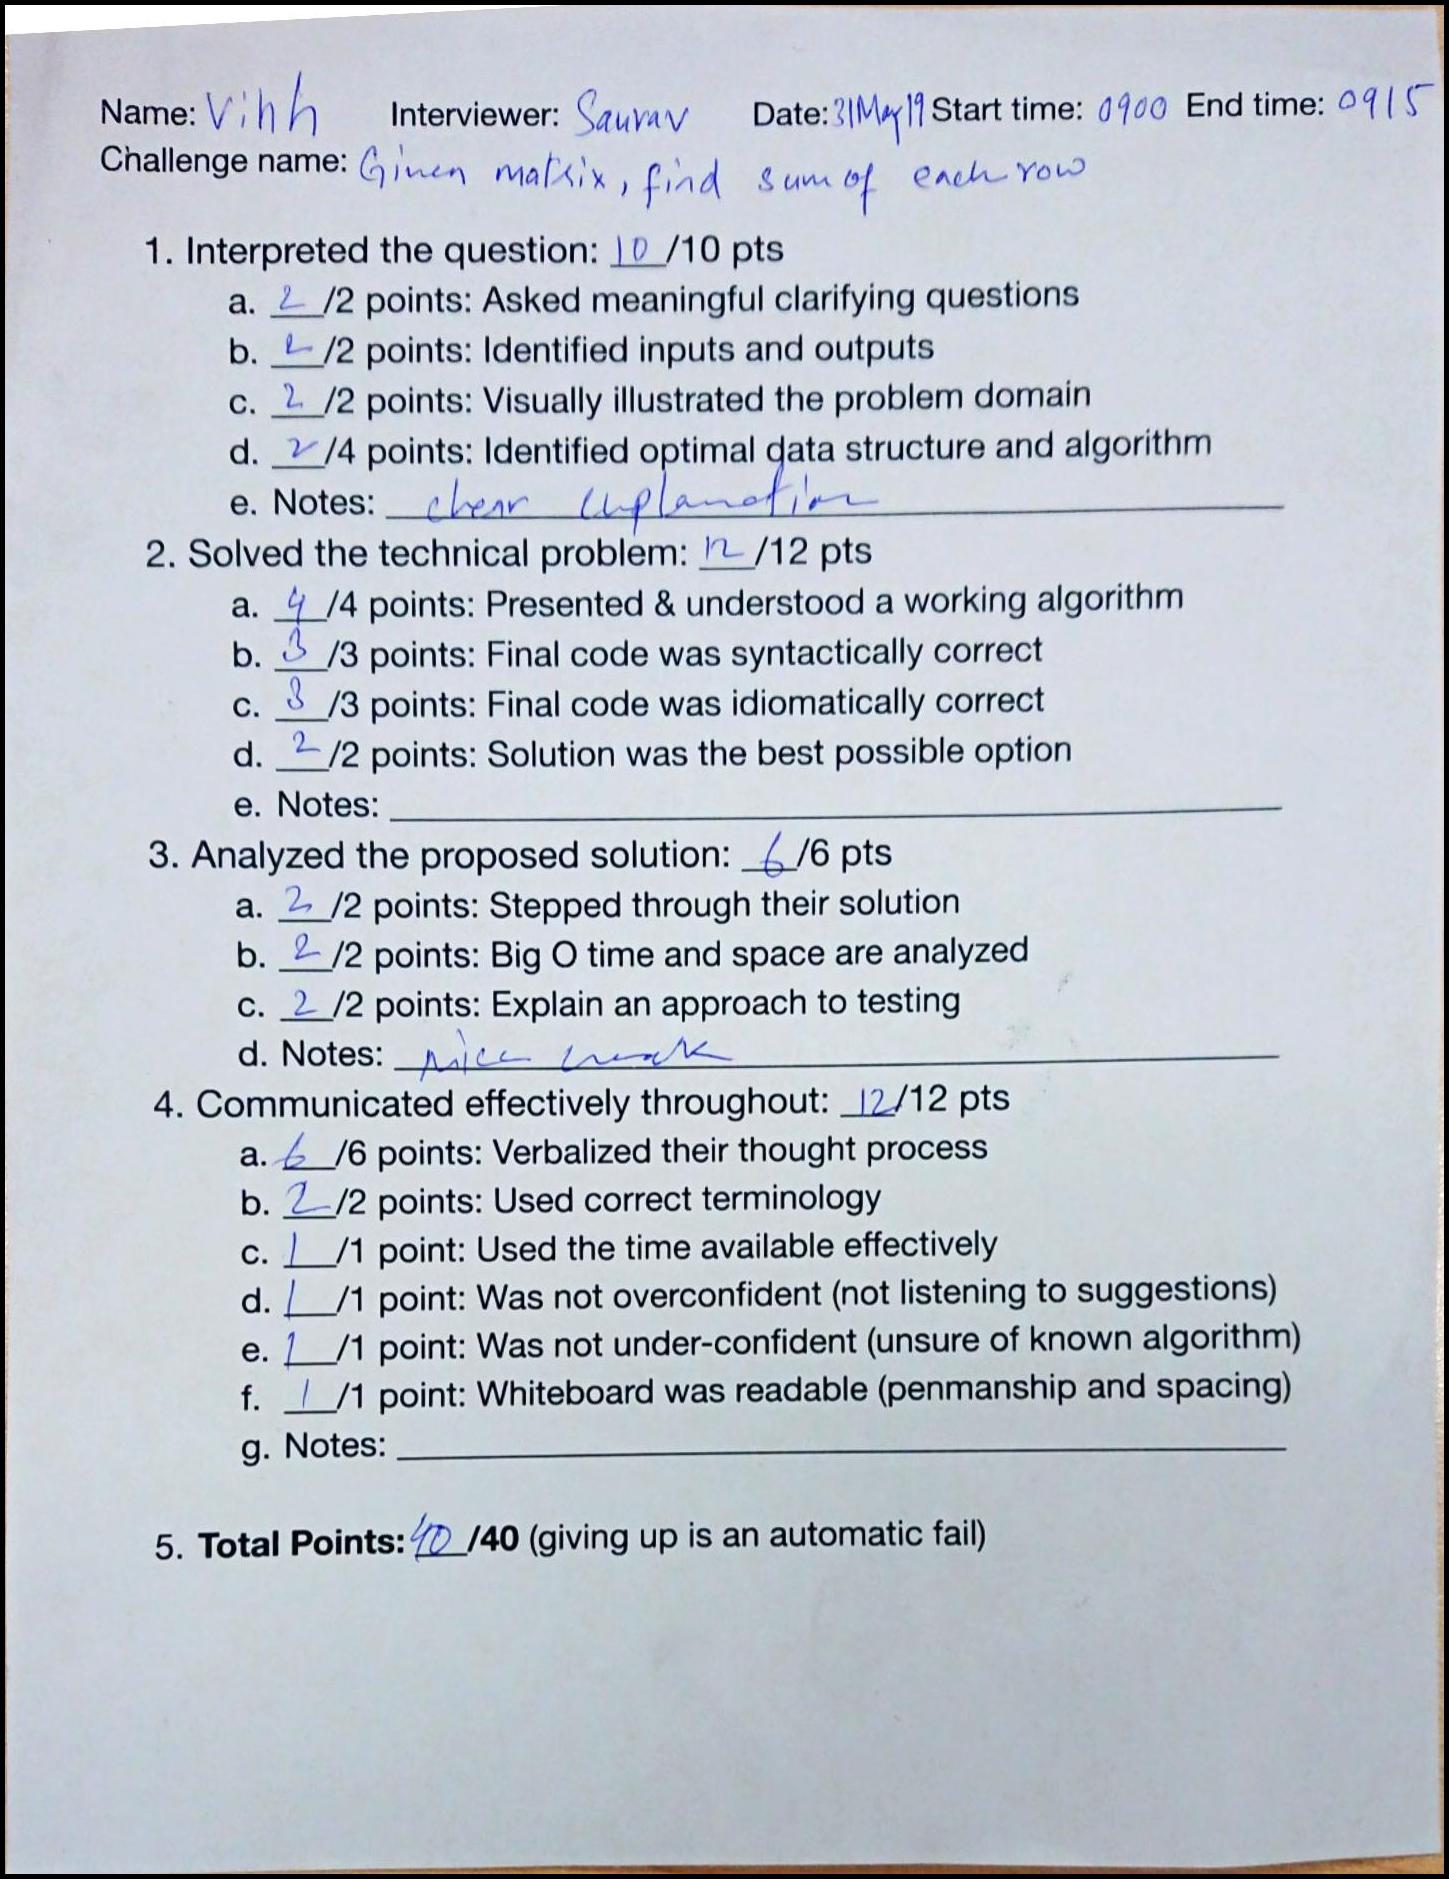 Name: Vinh Interviewer: Saurav Date: 31May19 Start time: 0900 End time: 0915
Challenge name: Given matrix, find sum of each row
1. Interpreted the question: 10/10 pts
a. 2/2 points: Asked meaningful clarifying questions
b. 2/2 points: Identified inputs and outputs
c. 2/2 points: Visually illustrated the problem domain
d. 2/4 points: Identified optimal data structure and algorithm
e. Notes: clear explanation
2. Solved the technical problem: 12/12 pts
a. 4/4 points: Presented & understood a working algorithm
b. 3/3 points: Final code was syntactically correct
c. 3/3 points: Final code was idiomatically correct
d. 2/2 points: Solution was the best possible option
e. Notes:
3. Analyzed the proposed solution: 6/6 pts
a. 2/2 points: Stepped through their solution
b. 2/2 points: Big O time and space are analyzed
c. 2/2 points: Explain an approach to testing
d. Notes: nice work
4. Communicated effectively throughout: 12/12 pts
a. 6/6 points: Verbalized their thought process
b. 2/2 points: Used correct terminology
c. 1/1 point: Used the time available effectively
d. 1/1 point: Was not overconfident (not listening to suggestions)
e. 1/1 point: Was not under-confident (unsure of known algorithm)
f. 1/1 point: Whiteboard was readable (penmanship and spacing)
g. Notes:
5. Total Points: 40/40 (giving up is an automatic fail)